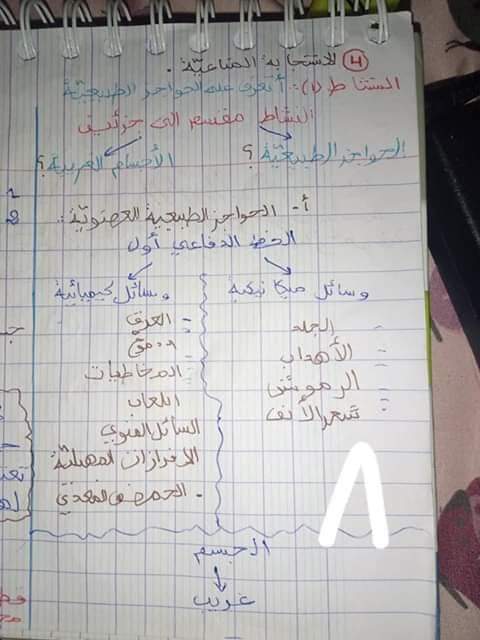 4 الاستجابة المناعية.
النشاط (1): أتعرف على الحواجز الطبيعية
النشاط مقسم إلى جزئين
الحواجز الطبيعية ؟ الأجسام الغريبة ؟
أ- الحواجز الطبيعية العضوية:
الخط الدفاعي أول
وسائل ميكانيكية وسائل كيميائية
- الجلد - العرق
- الأهداب - دموع
- الرموش - المخاطيات
- شعر الأنف اللعاب
السائل المنوي
الافرازات المهبلية
- الحمض المعدي
الجسم
غريب
1
2